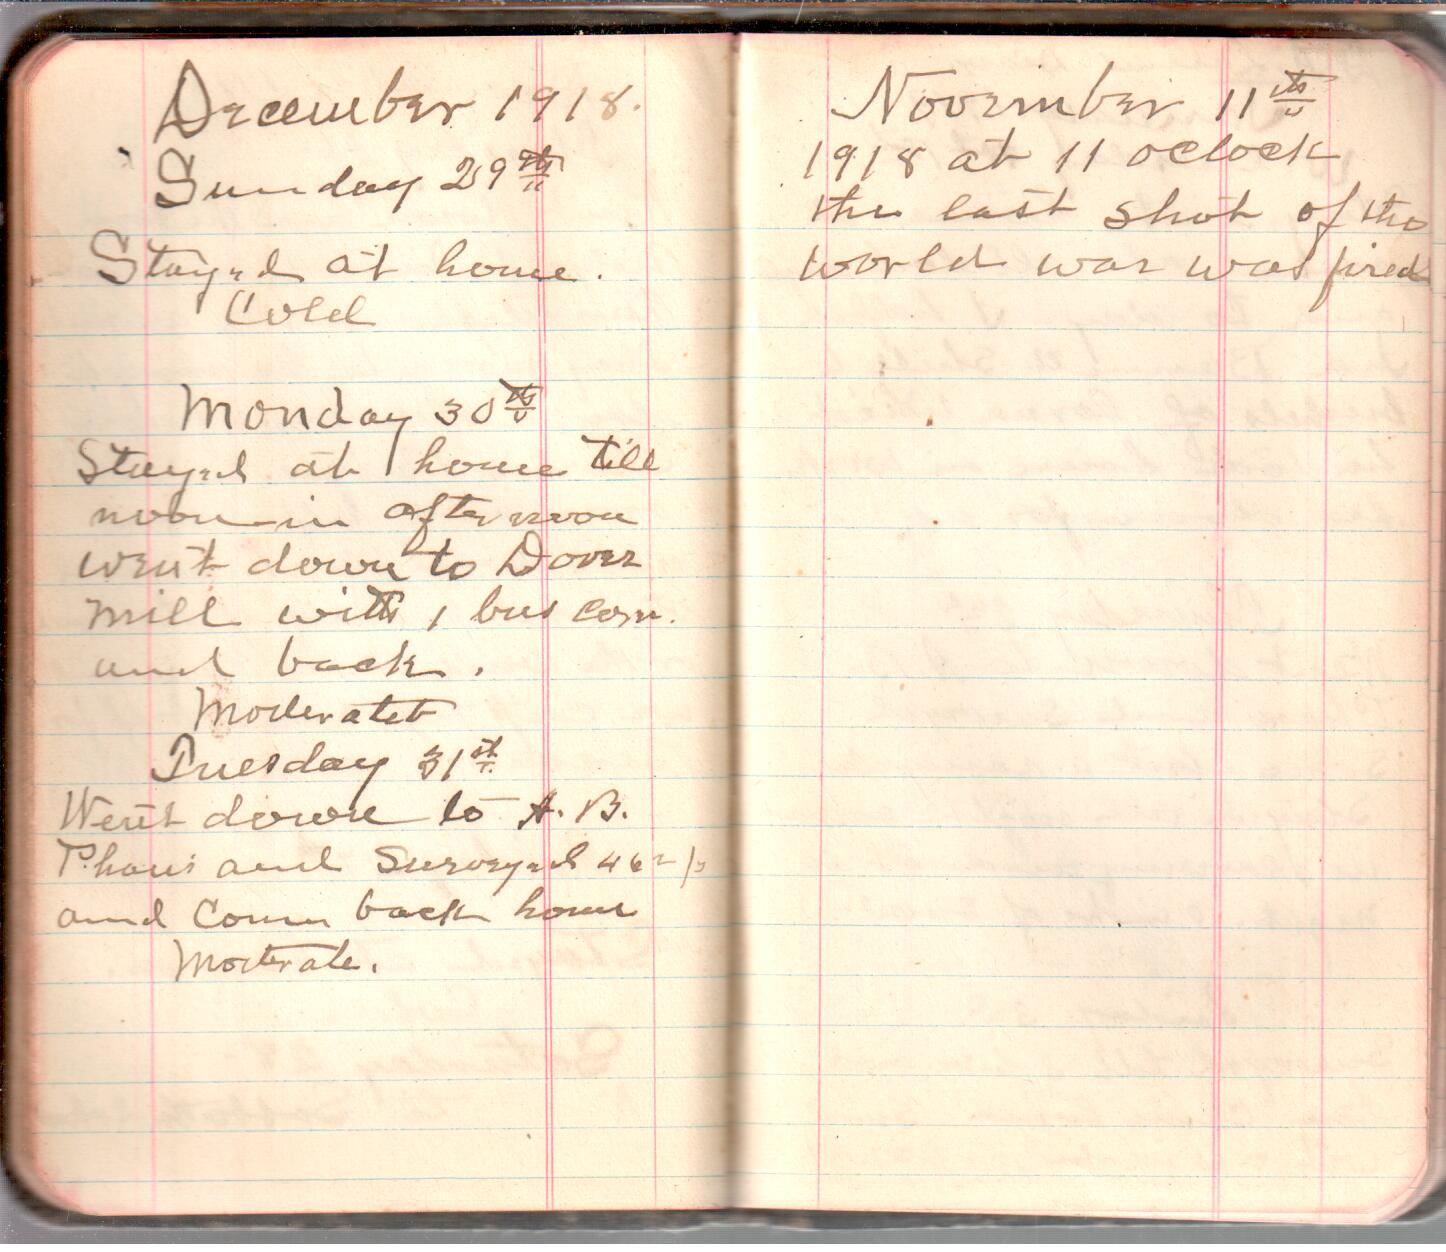 December 1918.
Sunday 29th
Stayed at home.
Cold
Monday 30th
Stayed at home till
noon in afternoon
went down to Dover
mill with 1 bus corn.
and back.
Moderate
Tuesday 31st
Went down to A. B.
and Surveyed
and Come back home
Moderate.
November 11th
1918 at 11 oclock
the last shot of the
world war was fired